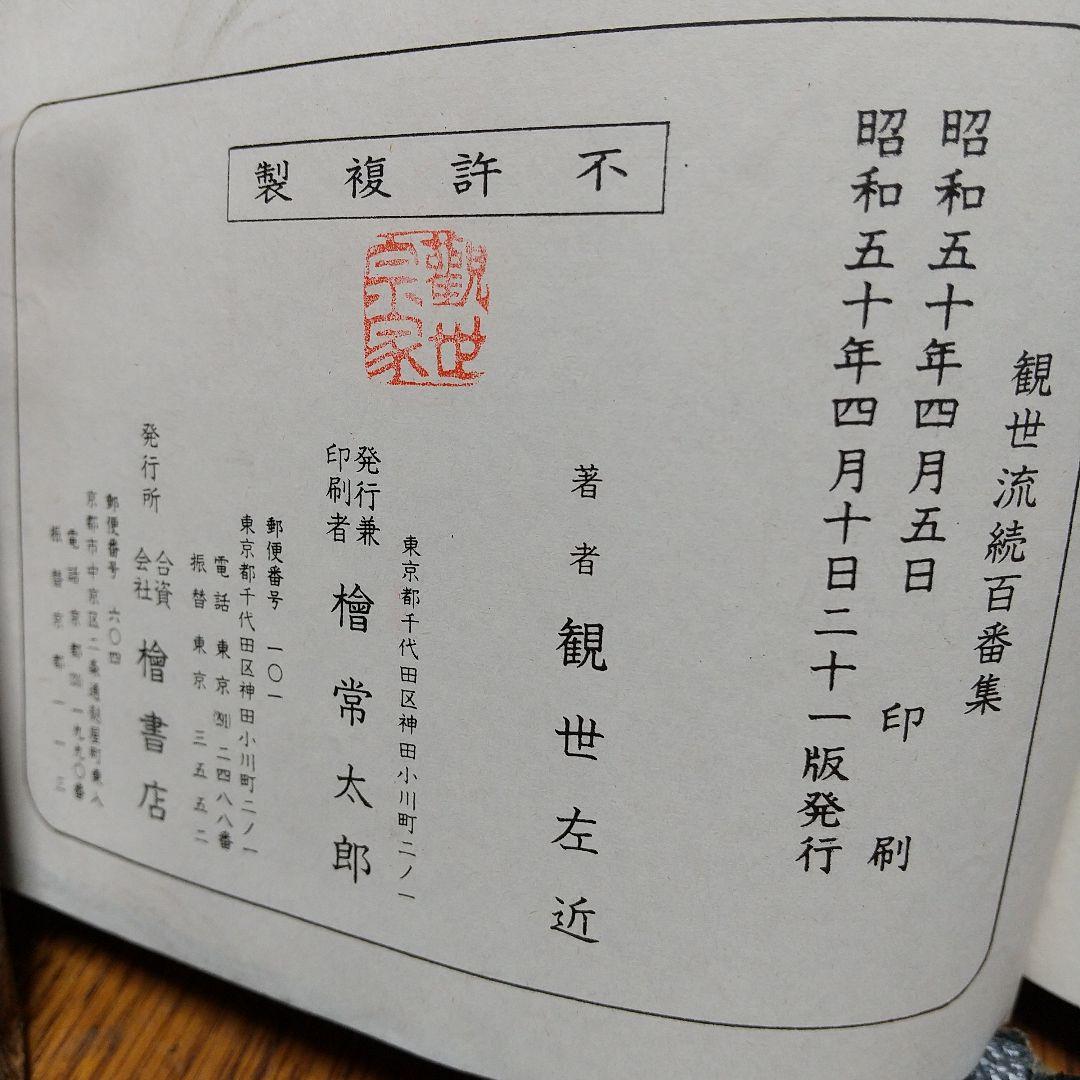 観世流続百番集
昭和五十年四月五日 印刷
昭和五十年四月十日二十一版発行
不許複製
觀世
宗家
著者 観世左近
東京都千代田区神田小川町二ノ一
発行兼
印刷者 檜常太郎
郵便番号 一〇一
東京都千代田区神田小川町二ノ一
電話 東京 (291) 二四八八番
振替 東京 三五五二
発行所 合資
会社 檜書店
郵便番号 六〇四
京都市中京区二条通麩屋町東入
電話 京都 一九九〇番
振替 京都 一一三